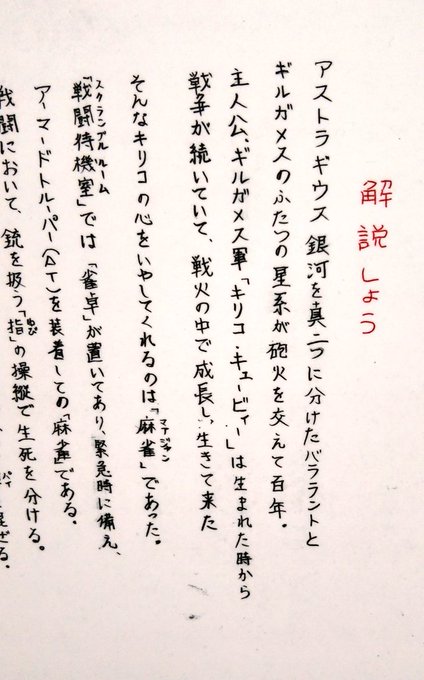 解説しよう
アストラギウス銀河を真二つに分けたバララントと
ギルガメスのふたつの星系が砲火を交えて百年。
主人公、ギルガメス軍「キリコ・キュービィー」は生まれた時から
戦争が続いていて、戦火の中で成長し、生きて来た
そんなキリコの心をいやしてくれるのは「麻雀」であった。
マアジャン
「戦闘待機室」では「雀卓」が置いてあり、緊急時に備え、
スクランブルルーム
アーマードトルーパー(AT)を装着しての「麻雀」である。
戦闘において、銃を扱う「指」の操縦で生死を分ける。
ゆび